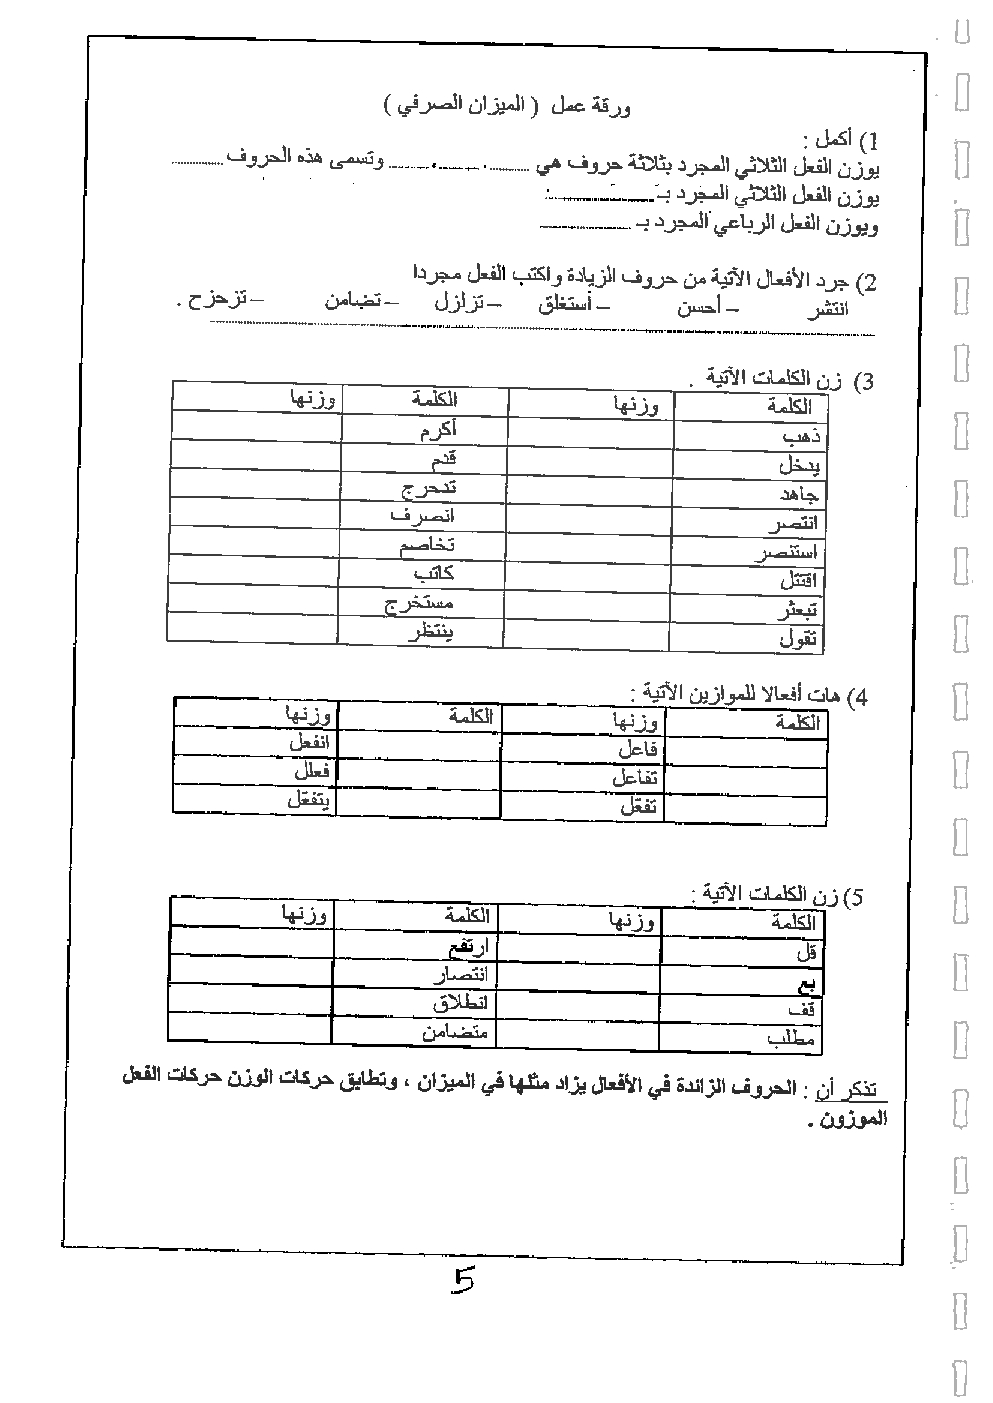 ورقة عمل ( الميزان الصرفي )
1) أكمل :
يوزن الفعل الثلاثي المجرد بثلاثة حروف هي ........ , ........ , ........ وتسمى هذه الحروف ............
يوزن الفعل الثلاثي المجرد بـ ......................
ويوزن الفعل الرباعي المجرد بـ ......................
2) جرد الأفعال الآتية من حروف الزيادة واكتب الفعل مجردا
انتشر – أحسن – أستغلق – تزلزل – تضامن – تزحزح .
3) زن الكلمات الآتية .
الكلمة وزنها الكلمة وزنها
ذهب أكرم
يدخل قدم
جاهد تدحرج
انتصر انصرف
استنصر تخاصم
اقتتل كاتب
تبعثر مستخرج
تقول ينتظر
4) هات أفعالا للموازين الآتية :
الكلمة وزنها الكلمة وزنها
فاعل انفعل
تفاعل فعلل
تفعّل يتفعّل
5) زن الكلمات الآتية :
الكلمة وزنها الكلمة وزنها
قل ارتفع
بع انتصار
قف انطلاق
مطلب متضامن
تذكر أن : الحروف الزائدة في الأفعال يزاد مثلها في الميزان ، وتطابق حركات الوزن حركات الفعل
الموزون .
5